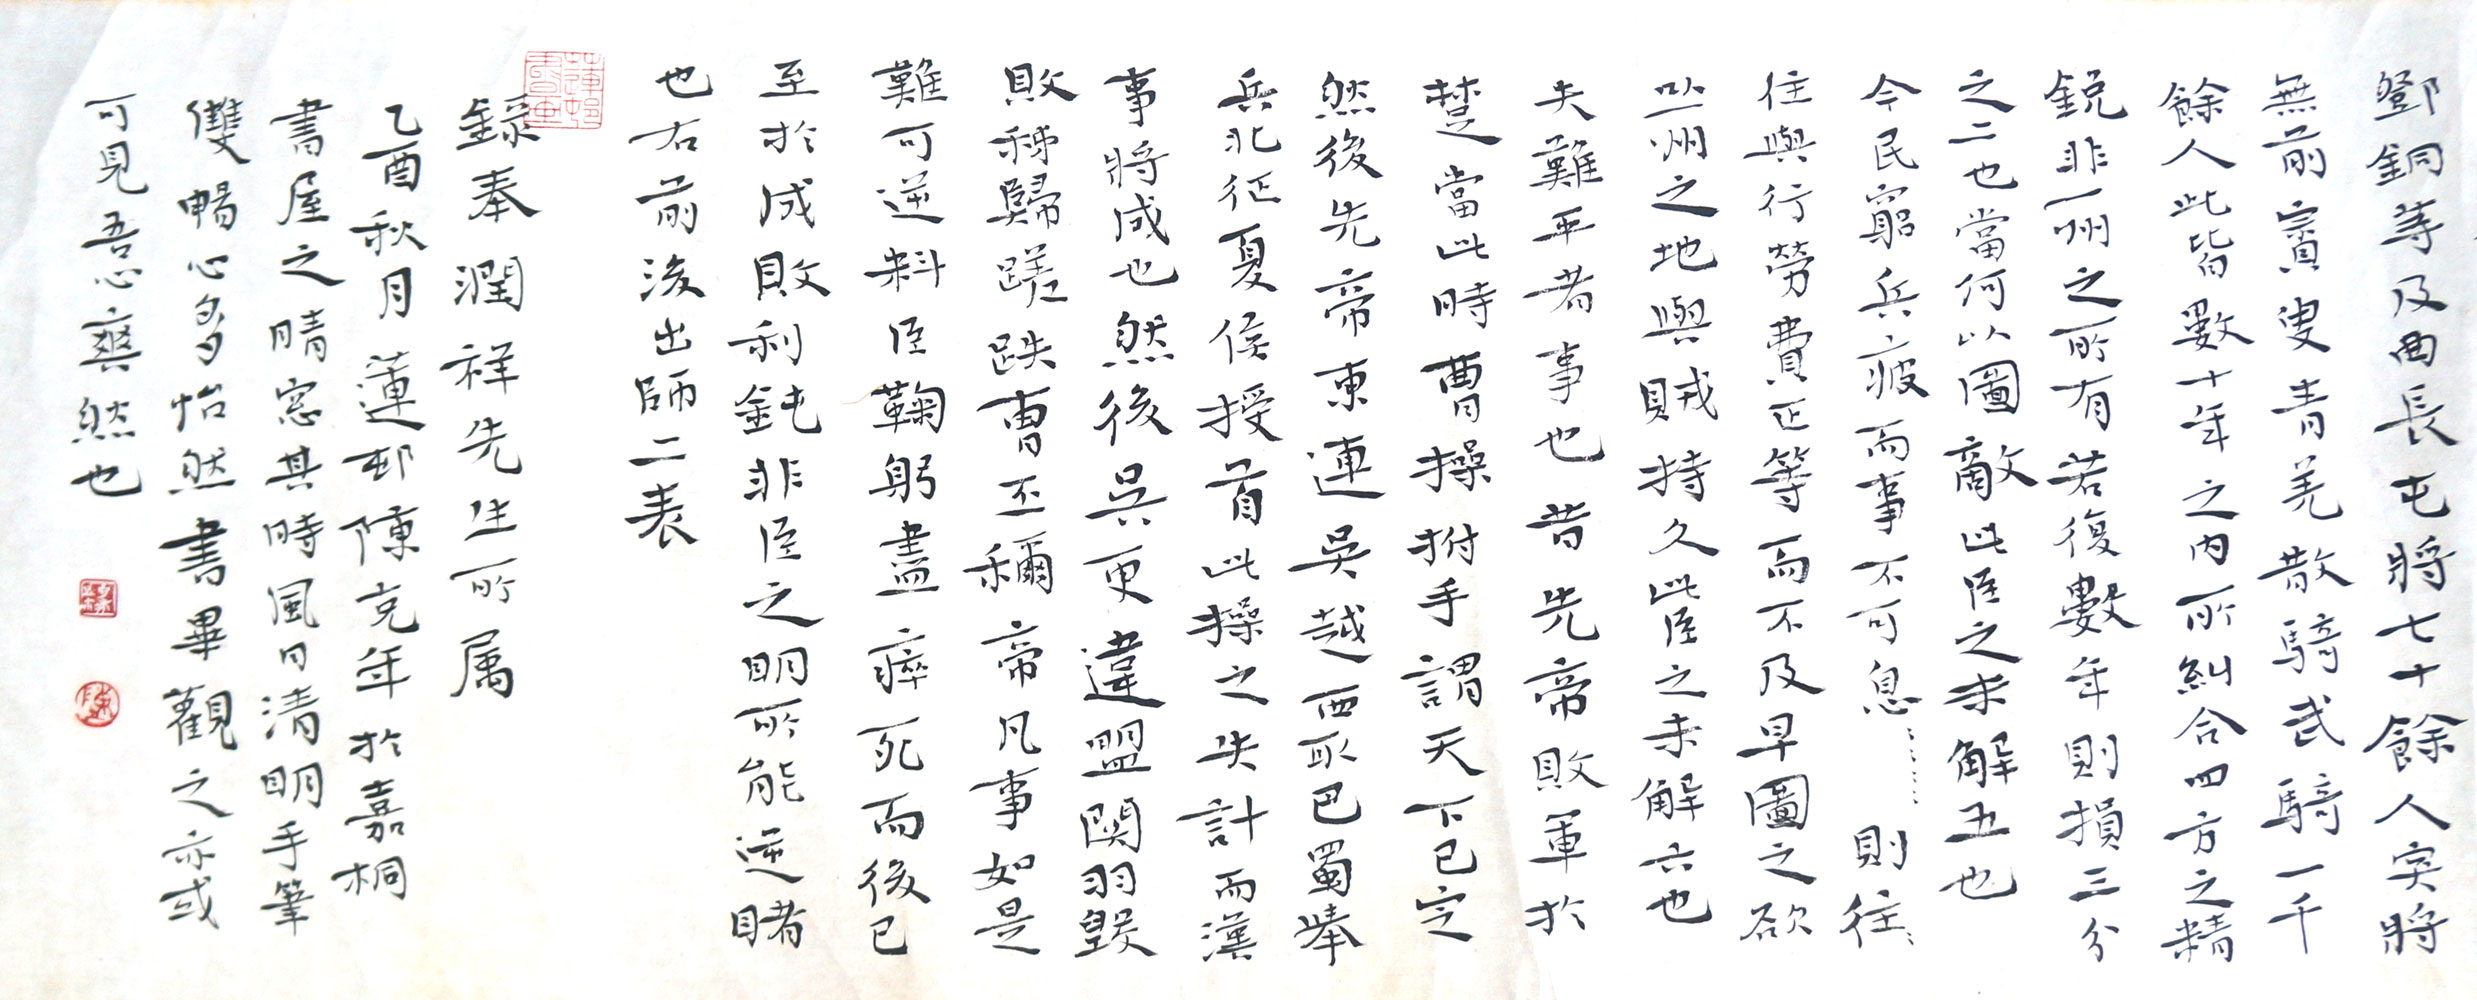 鄧銅等及曲長屯將七十餘人突將
無前賨叟青羌散騎武騎一千
餘人此皆數十年之內所糾合四方之精
銳非一州之所有若復數年則損三分
之二也當何以圖敵此臣之未解五也
今民窮兵疲而事不可息則往
往與行勞費正等而不及早圖之欲
以一州之地與賊持久此臣之未解六也
夫難平者事也昔先帝敗軍於
楚當此時曹操拊手謂天下已定
然後先帝東連吳越西取巴蜀舉
兵北征夏侯授首此操之失計而漢
事將成也然後吳更違盟關羽毀
敗秭歸蹉跌曹丕稱帝凡事如是
難可逆料臣鞠躬盡瘁死而後已
至於成敗利鈍非臣之明所能逆睹
也右前後出師二表
錄奉潤祥先生所属
乙酉秋月蓮邨陳克年於嘉桐
書屋之晴窓其時風日清明手筆
雙暢心身怡然書畢觀之亦或
可見吾心爽然也